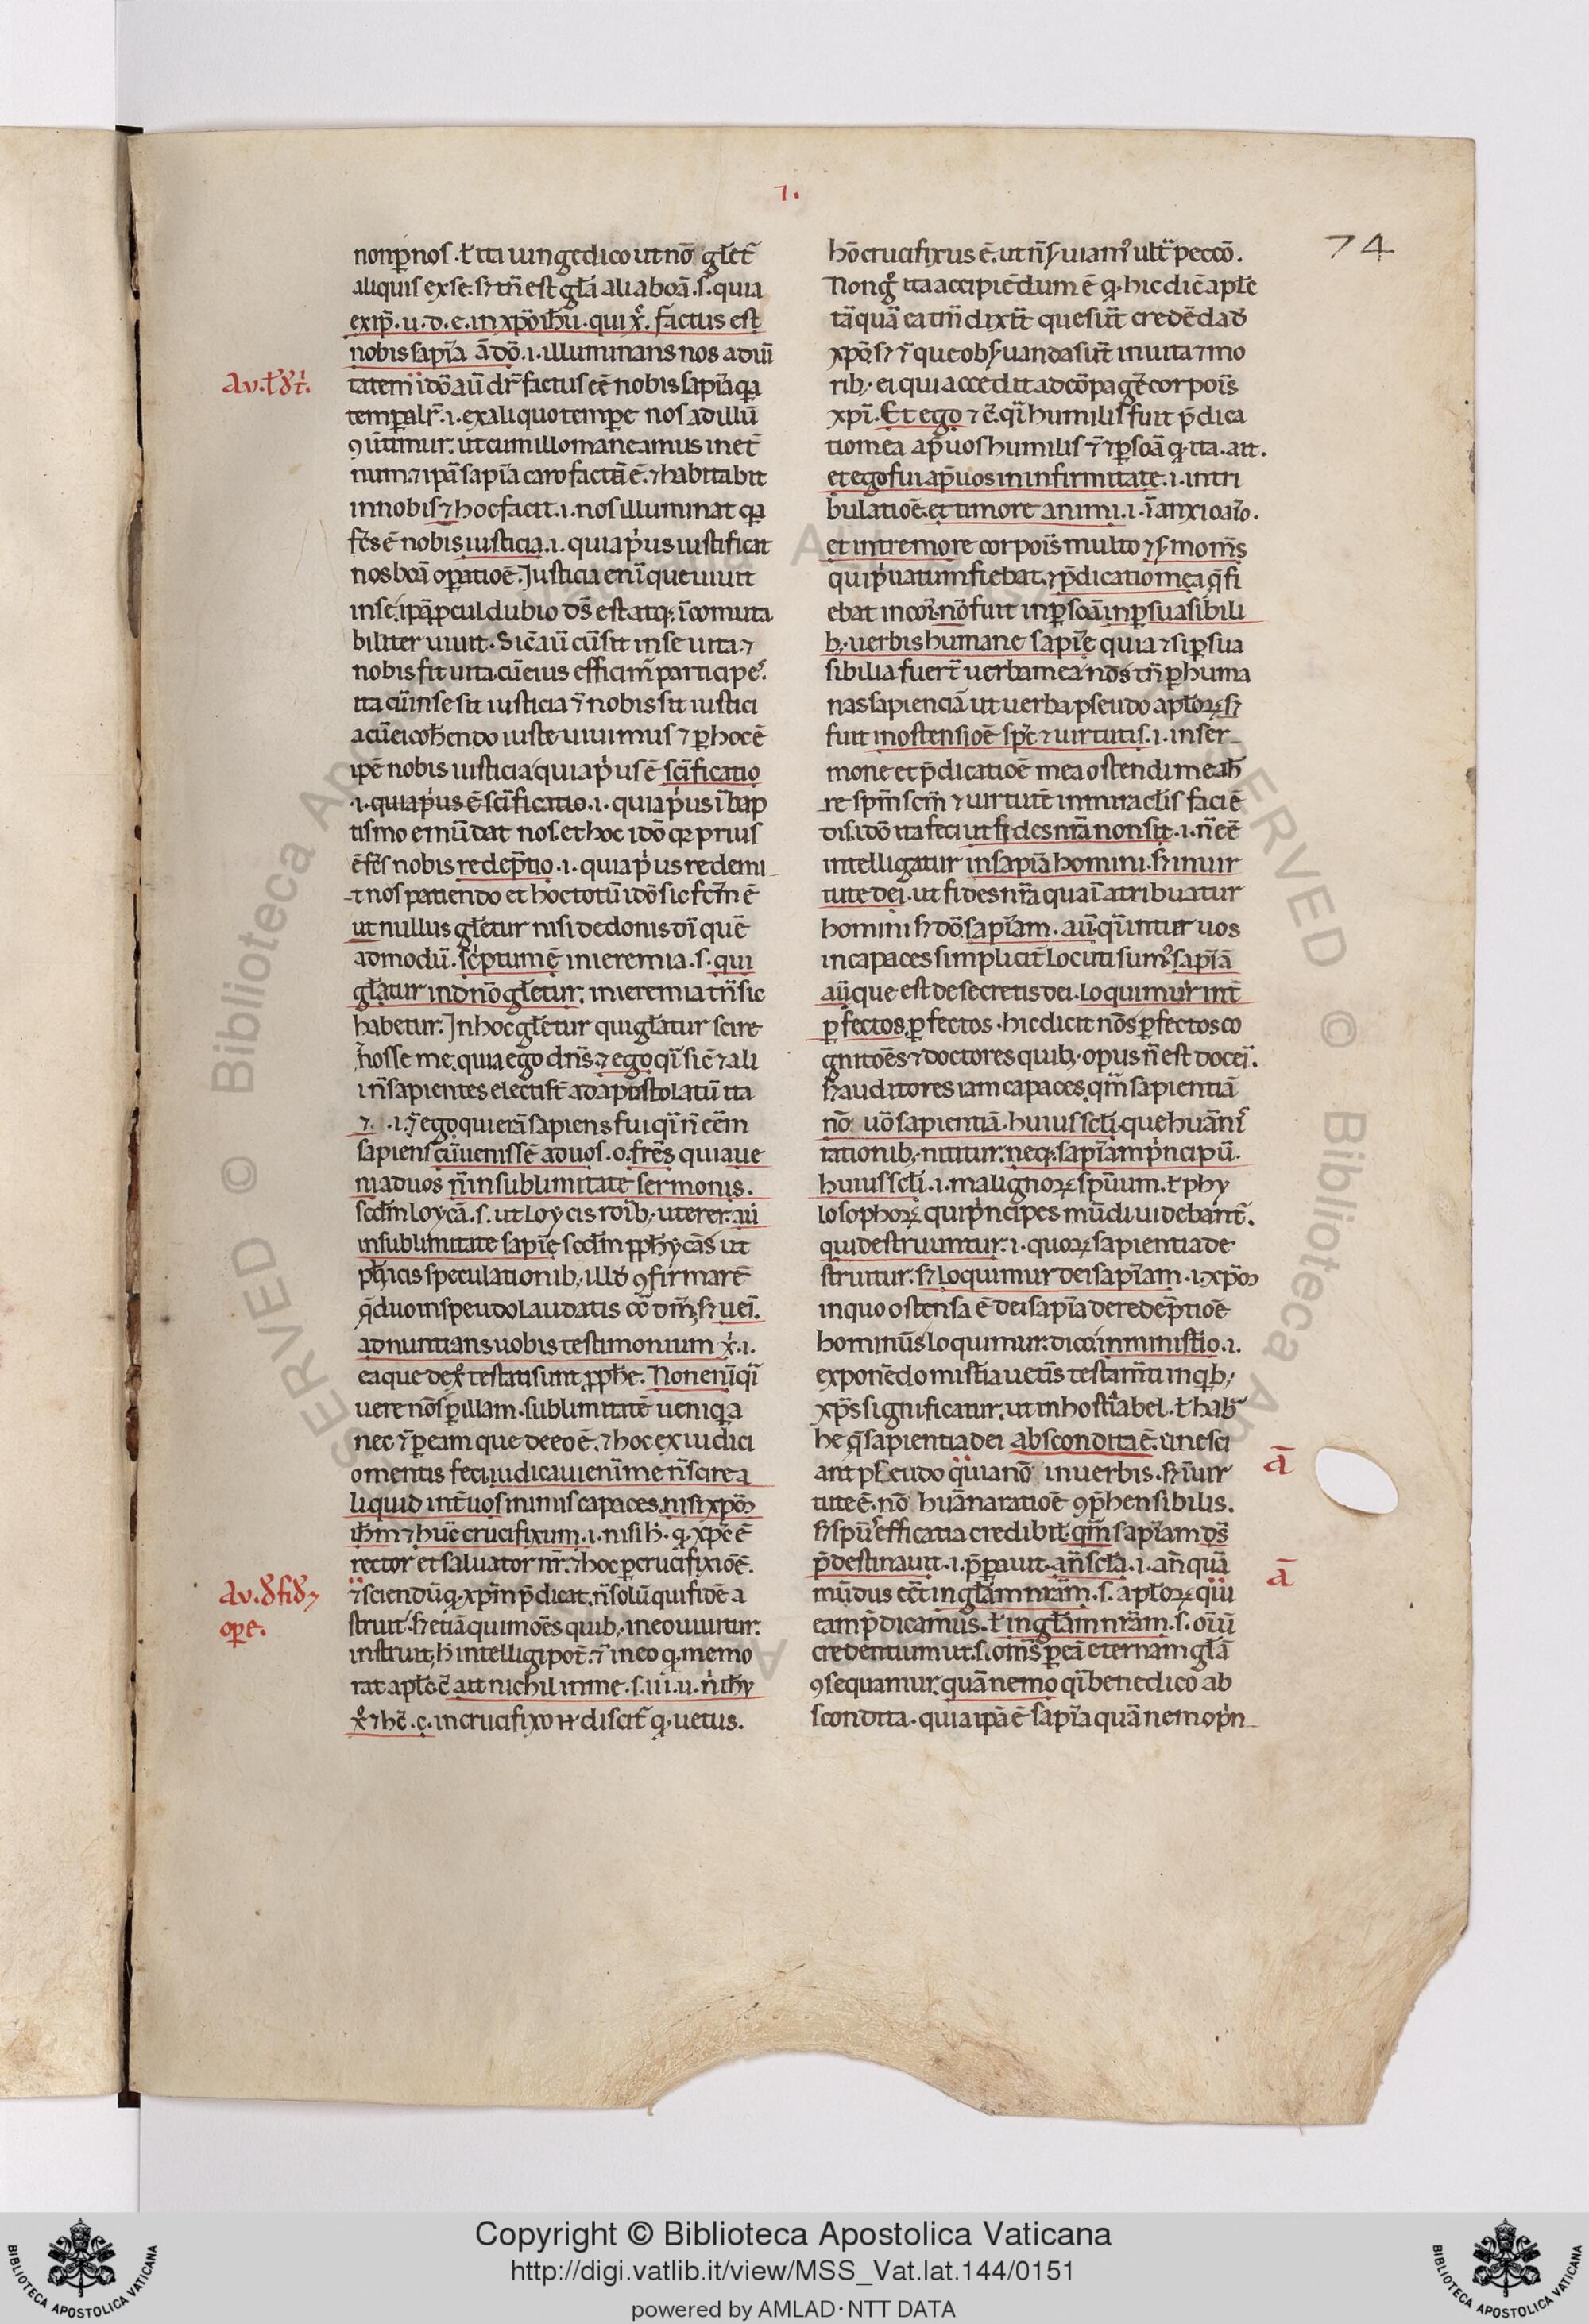 7.
74
non per nos. ł ita iungedico ut nō głet᷑
aliquis ex se. sꝫ tn̄ est gła alia bōa. s. quia
ex ip̄. u. ꝺ. e. in xp̄o ih̄u. qui x̊. factus est
nobis sapīa ā ꝺō. i. illuminans nos
tatem iꝺō aū ꝺr̄ factus eē nobis sapīa qꝛ
temꝑalr̄. i. ex aliquo temꝑe nos aꝺ illū
ꝯūtimur. ut cum illo maneamus in et̄
num. ⁊ ipā sapīa caro factā ē. ⁊ habitabit
in nobis ⁊ hoc facit. i. nos illuminat qꝛ
fc̄s ē nobis iusticia. i. quia p̓us iustificat
nos bōa oꝑatioē. Justicia enī que uiuit
in se. ipā ꝓcul ꝺubio ꝺs̄ est atqꝫ īcomuta
biliter uiuit. Sic̄ aū cū sit in se uita. ⁊
nobis fit uita. cū eius efficim᷑ participes.
ita cū in se sit iusticia ⁊ nobis fit iustici
a cū ei coħenꝺo iuste uiuimus ⁊ ꝑ hoc ē
ip̄e nobis iusticia quia p̓us ē scīficatio
.i. quia p̓us ē scīficatio. i. quia p̓us ī bap
tismo emūꝺat nos. et hoc iꝺō qꝛ prius
ē fc̄s nobis reꝺēptio. i. quia p̓us reꝺemi
t nos patienꝺo et hoc totū iꝺō sic fc̄m ē
ut nullus głetur nisi ꝺe ꝺonis ꝺī quē
aꝺmoꝺū. sc̓ptum ē in ieremia. s. qui
głatur in ꝺn̄o głetur. in ieremia tn̄ sic
habetur. Jn hoc głetur qui głatur scire
⁊ nosse me. quia ego ꝺn̄s. ⁊ ego qī sic̄ ⁊ ali
i n̄ sapientes electi st̄ aꝺ apostolatū ita
⁊. .i. ⁊ ego qui erā sapiens fui qī n̄ eēm
sapiens cū uenissē aꝺ uos. o. fr̄es quia ue
ni aꝺ uos n̄ in sublimitate sermonis.
scꝺm loycā. s. ut loycis roīb; uterer. aū
in sublimitate sapīe scꝺm ph̄ycās ut
ph̄icis speculationib; illꝺ ꝯfirmarē
qꝺ uoinspeuꝺo lauꝺatis sꝫ uei.
aꝺnuntians uobis testimonium x̓. i.
ea que ꝺe x̊ testati sunt ꝓph̄e. Non enī qī
uere nō ꝑ illam. sublimitatē ueni qꝛ
nec ⁊ ꝑ eam que ꝺe eo ē. ⁊ hoc ex iuꝺici
o mentis feci. iuꝺicaui enī me n̄ scire a
liquiꝺ int᷑ uos minus capaces. nisi xp̄m
ih̄m ⁊ hūc crucifixum. i. nisi h̓. ꝙ xp̄c ē
rector et saluator nr̄. ⁊ hoc ꝑ crucifixiōē.
⁊ scienꝺū ꝙ xp̄m p̄ꝺicat. n̄ solū qui fiꝺē a
struit. sꝫ etiā qui mōes quib; in eo uiuitur.
instruit. h̓ intelligi pot̄. ⁊ in eo ꝙ memo
rat apłs ait nichil in me. s. iui. u. n̓ ih̄y
x̊ ⁊ hc̄. c. in crucifixo ꝺiscit᷑ ꝙ uetus.
hō crucifixus ē. ut n̄ s̓uiam᷒ ult᷑ peccō.
Non gͦ ita accipienꝺum ē ꝙ hic ꝺic̄ apłe
tāquā ea tm̄ ꝺixit᷑ que sūt creꝺēꝺa ꝺ
xp̄o. sꝫ ⁊ que obs̓uanꝺa sūt in uita ⁊ mo
rib; ei qui acceꝺit aꝺ cōpagē corporis
xpī. Et ego ⁊ c̄. qī humilis fuit p̄ꝺica
tio mea ap̄ uos humilis ⁊ ꝑsōa ꝙ ita. ait.
et ego fui ap̄ uos in infirmitate. i. in tri
bulatioē. et timore animi. i. ī anxi
et in tremore corpois multo ⁊ s̓monis
qui p̓uatim fiebat. ⁊ p̄ꝺicatio mea q̄ fi
ebat in coī. nō fuit in ꝑsuasibili
b; uerbis humane sapīe quia ⁊ si ꝑsua
sibilia fuerīt uerba mea nō tn̄ ꝑ huma
nas sapienciā ut uerba pseuꝺo apłoꝝ sꝫ
fuit in ostensioē sp̄c ⁊ uirtutis. i. in ser
mone et p̄ꝺicatioē mea ostenꝺi me ab̄
re sp̄m sc̄m ⁊ uirtutē in miracłis faciē
ꝺis. iꝺō ita feci ut fiꝺes nr̄a non sit. i. n̄ eē
intelligatur in sapīa homini. sꝫ in uir
tute ꝺei. ut fiꝺes nr̄a quaī atribuatur
homini sꝫ ꝺō. sapīam. aū. qī intur uos
incapaces simplicit᷑ locuti sum᷒ sapīā
aū que est ꝺe secretis ꝺei. loquimur int᷑
ꝑfectos. ꝑfectos. hic ꝺicit nō ꝑfectos co
gnitōes ⁊ ꝺoctores quib; opus n̄ est ꝺoceri.
sꝫ auꝺitores iam capaces. qm̄ sapientiā
nō uō sapientiā. huius scłi. que huānis
rationib; nititur. neqꝫ sapīam p̓ncipū.
huius scłi. i. malignoꝝ sp̄uum. ł phy
losophoꝝ qui p̓ncipes mūꝺi uiꝺebānt᷑.
qui ꝺestruuntur. i. quoꝝ sapientia ꝺe
struitur. sꝫ loquimur ꝺei sapīam. i. xp̄m
in quo ostensa ē ꝺei sapīa ꝺe reꝺēptioē
hominū loquimur. ꝺico in ministīo. i.
exponēꝺo mistīa uetis testam̄ti in qīb;
xp̄s significatur. ut in hostia abel. ł hab̄
he q̄ sapientia ꝺei absconꝺita ē. ū nesci
ant pseuꝺo quia nō in uerbis. sꝫ ī uir
tute ē. nō huāna ratioē ꝯp̄hensibilis.
sꝫ sp̄us efficatia creꝺibił. qm̄ sapīam ꝺs̄
p̄ꝺestinauit. i. p̄parauit. an̄ scła. i. an̄ quā
mūꝺus eēt in głam nr̄am. s. apłoꝝ qui
eam p̄ꝺicamus. ł in głam nr̄am. s. oīū
creꝺentium ut. s. om̄s ꝑ eā eternam głā
ꝯsequamur. quā nemo qī bene ꝺico ab
sconꝺita. quia ipā ē sapīa quā nemo p̓n
Av. ꝺ fiꝺ ⁊
ope.
ā
ā
Copyright © Biblioteca Apostolica Vaticana
http://digi.vatlib.it/view/MSS_Vat.lat.144/0151
powered by AMLAD·NTT DATA
BIBLIOTECA APOSTOLICA VATICANA
BIBLIOTECA APOSTOLICA VATICANA